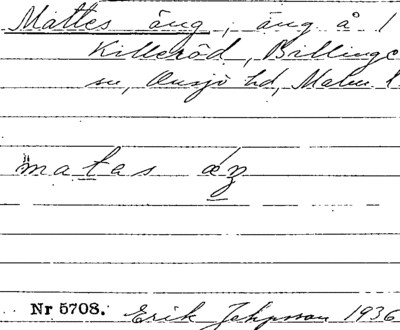 Mattes äng, äng å 1
Killeröd, Billinge
sn, Onsjö hd, Malm. l.
matas æŋ
Nr 5708. Erik Jeppsson 1936